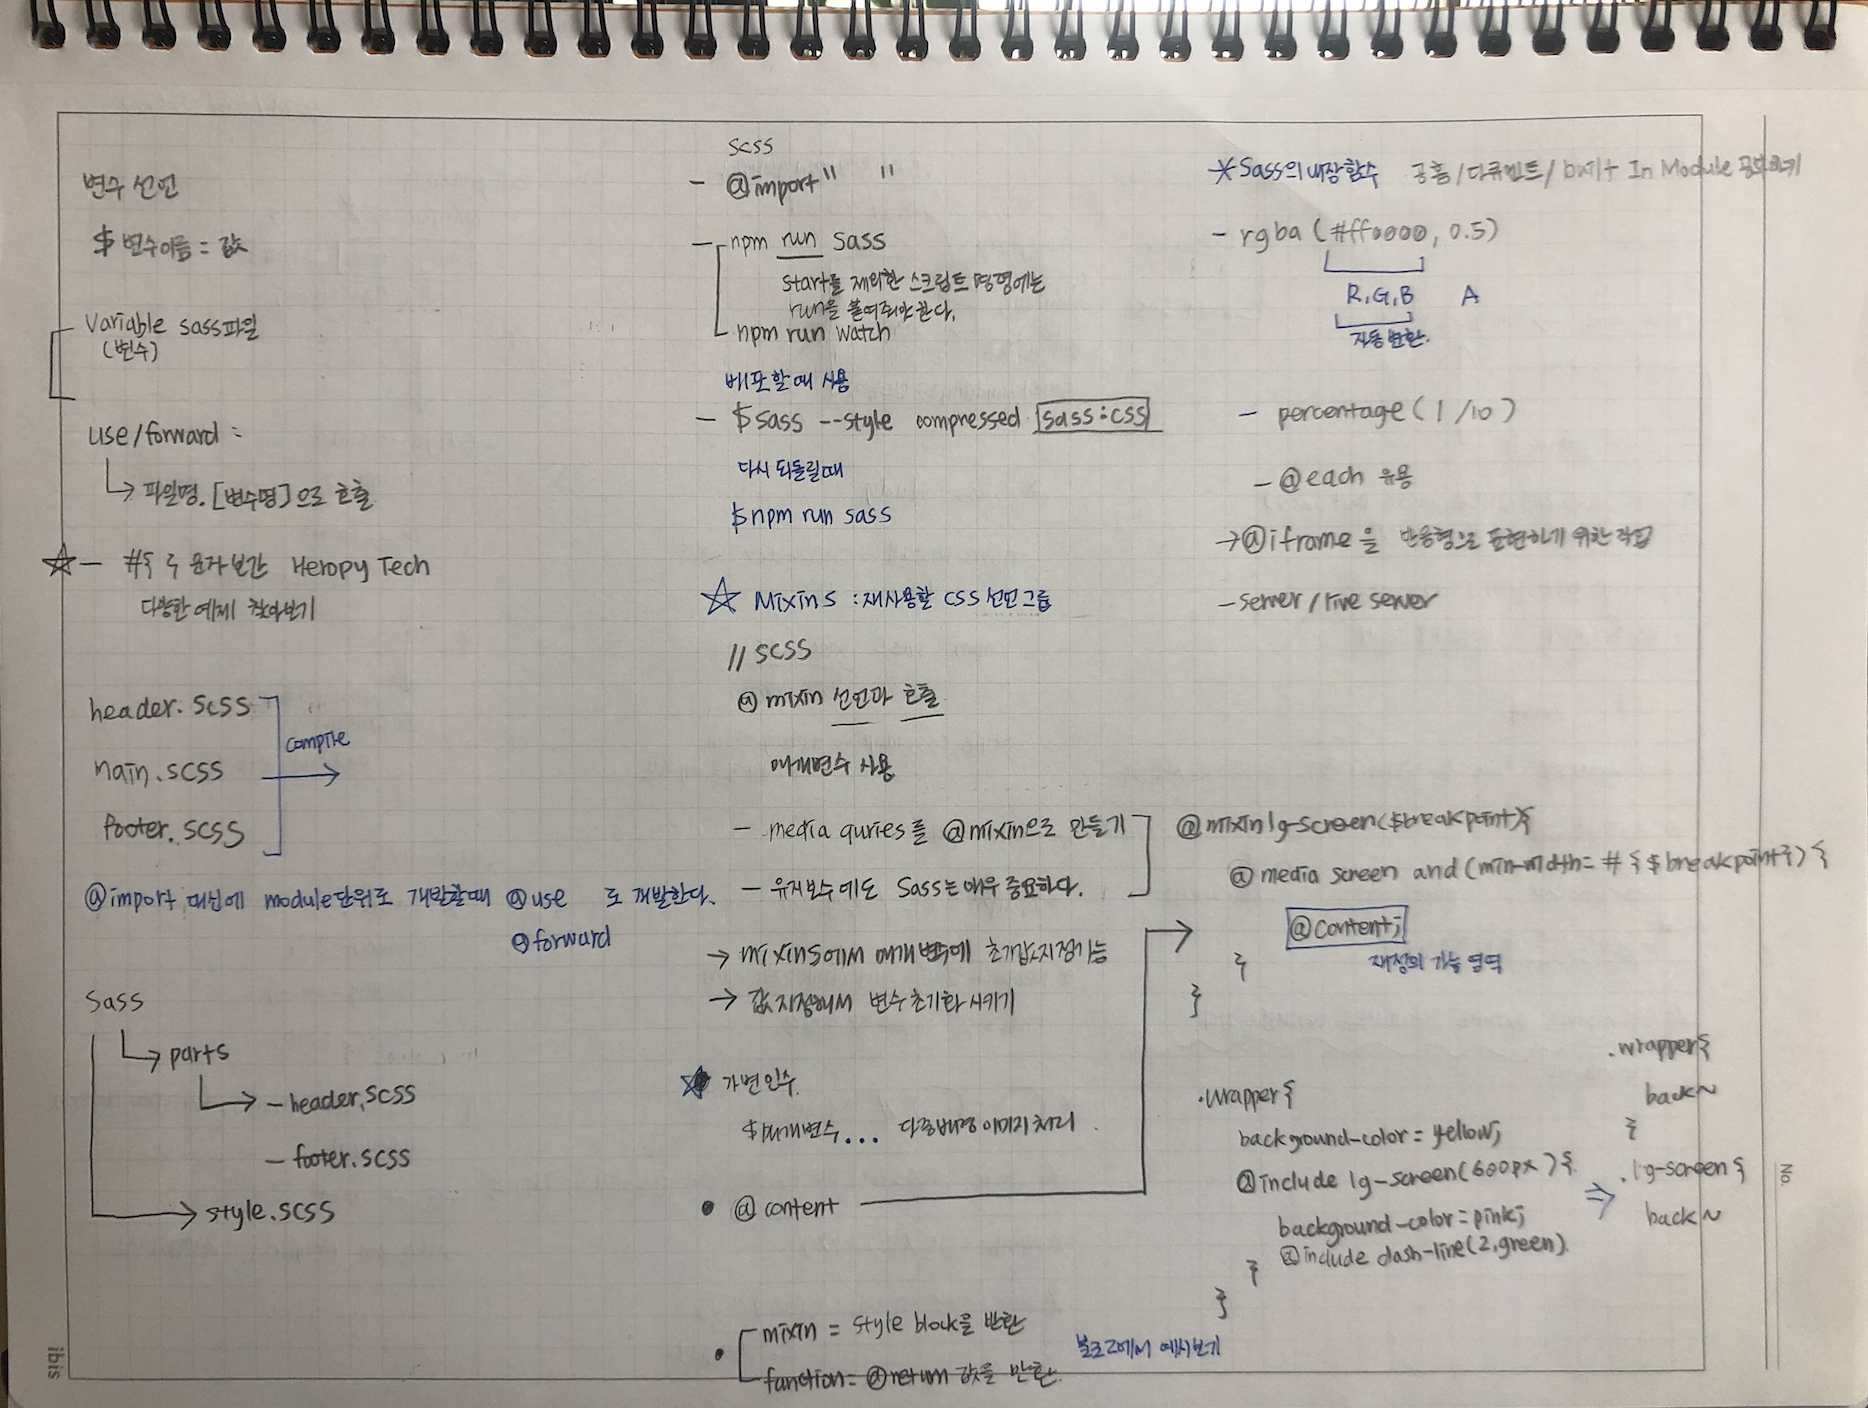 변수 선언
$ 변수이름 = 값
Variable sass파일
(변수)
use/forward :
파일명.[변수명]으로 호출
☆ - #{ } 문자보간 Heropy Tech
다양한 예제 찾아보기
header.scss
main.scss
footer.scss
compile
@import 대신에 module단위로 개발할때 @use 로 개발한다.
@forward
Sass
parts
- header.scss
- footer.scss
style.scss
scss
- @import " "
- npm run sass
start를 제외한 스크립트 명령에는
run을 붙여줘야한다.
npm run watch
배포할때 사용
- $sass --style compressed sass:css
다시 되돌릴때
$npm run sass
☆ Mixins : 재사용할 CSS 선언그룹
// SCSS
@ mixin 선언과 호출
매개변수 사용
- media quries를 @mixin으로 만들기
- 유지보수에도 Sass는 매우 중요하다.
→ mixins에서 매개변수에 초기값지정가능
→ 값 지정해서 변수 초기화 시키기
☆ 가변인수.
$매개변수... 다중배경이미지처리.
• @content
• mixin = style block을 반환
function = @return 값을 반환.
블로그에서 예시보기
*Sass의 내장함수 공홈/다큐먼트/built In Module 공부하기
- rgba (#ff0000, 0.5)
R,G,B A
자동변환.
- percentage (1/10)
- @each 유용
→@iframe을 반응형으로 표현하기 위한 작업
- server/live server
@mixin lg-screen($breakpoint){
@media screen and (min-width= #{$breakpoint}) {
@content;
재정의 가능 영역
}
}
.wrapper{
background-color = yellow;
@include lg-screen(600px){
background-color = pink;
@include dash-line(2,green).
}
}
⇒
.wrapper{
back~
}
.lg-screen{
back~
No.
ibis